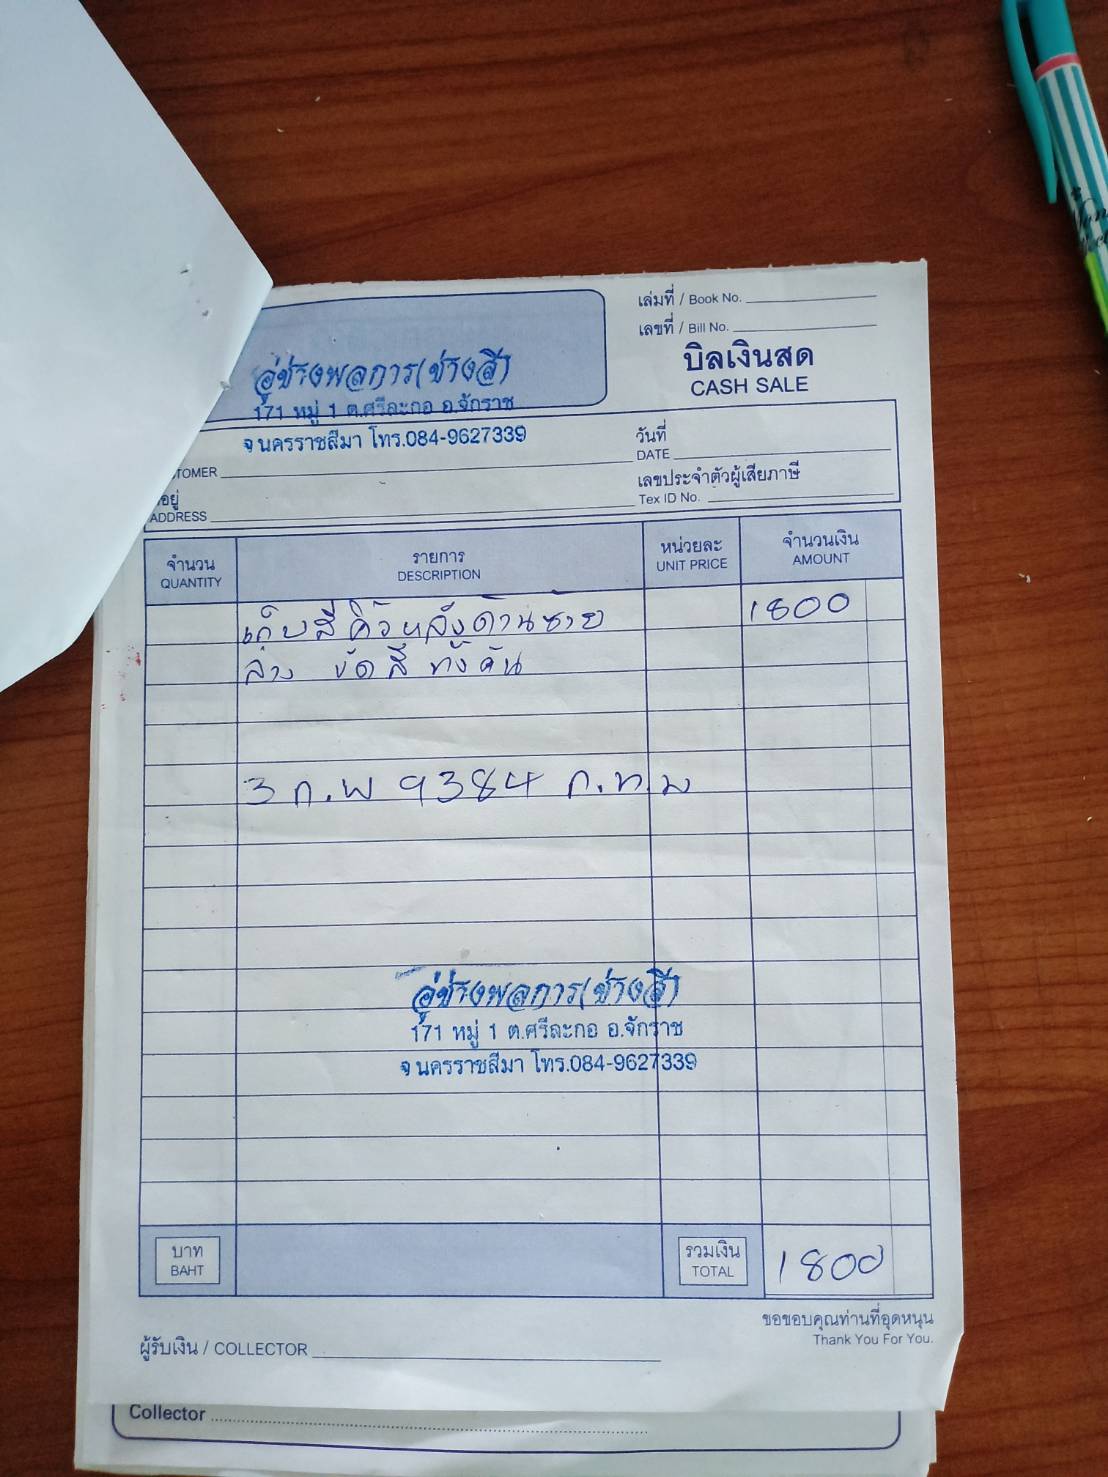 เล่มที่ / Book No.
เลขที่ / Bill No.
บิลเงินสด
CASH SALE
อู่ช่างพลการ(ช่างสี)
171 หมู่ 1 ต.ศรีละกอ อ.จักราช
จ นครราชสีมา โทร.084-9627339
วันที่
DATE
TOMER
เลขประจำตัวผู้เสียภาษี
Tex ID No.
อยู่
ADDRESS
จำนวน รายการ หน่วยละ จำนวนเงิน
QUANTITY DESCRIPTION UNIT PRICE AMOUNT
เก็บสีคิ้วหลังด้านซ้าย 1800
ล่าง ขัดสีทั้งคัน
3 ก.พ 9384 ก.ท.ม
อู่ช่างพลการ(ช่างสี)
171 หมู่ 1 ต.ศรีละกอ อ.จักราช
จ นครราชสีมา โทร.084-9627339
บาท รวมเงิน 1800
BAHT TOTAL
ขอขอบคุณท่านที่อุดหนุน
Thank You For You.
ผู้รับเงิน / COLLECTOR
Collector